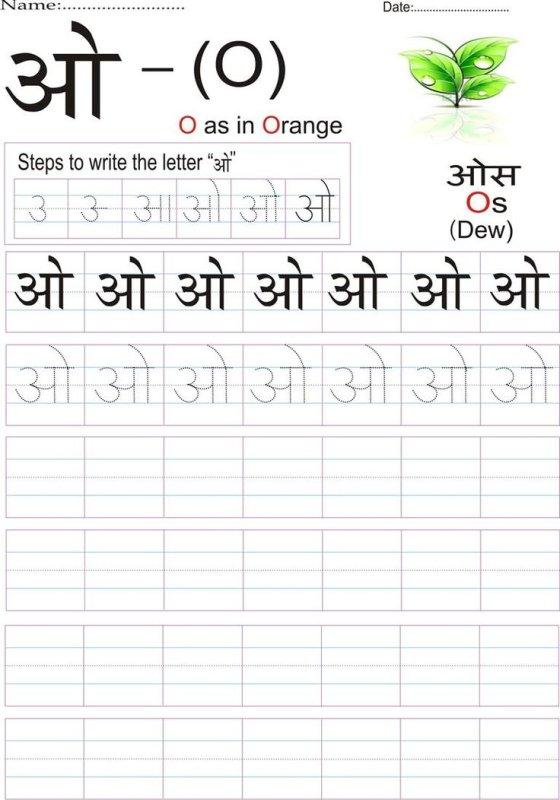 Name:........................
Date:...............................
ओ – (O)
O as in Orange
Steps to write the letter “ओ”
उ उ- अा ओ ओ ओ
ओस
Os
(Dew)
ओ ओ ओ ओ ओ ओ ओ
ओ ओ ओ ओ ओ ओ ओ